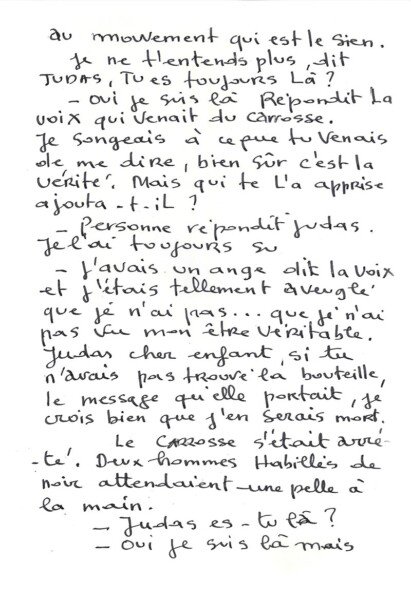 au mouvement qui est le sien.
Je ne t'entends plus, dit
JUDAS, Tu es toujours Là ?
- oui je suis là Répondit La
voix qui venait du carrosse.
Je songeais à ce que tu venais
de me dire, bien sûr c'est la
vérité. Mais qui te L'a apprise
ajouta-t-iL ?
- Personne répondit judas.
Je l'ai toujours su
- j'avais un ange dit la voix
et j'étais tellement aveuglé
que jé n'ai pas... que je n'ai
pas vu mon être véritable.
Judas cher enfant, si tu
n'avais pas trouvé la bouteille,
le message qu'elle portait, je
crois bien que j'en serais mort.
Le CARROSSE s'était arré-
-té. Deux hommes Habillés de
noir attendaient une pelle à
la main.
- Judas es-tu là ?
- oui je suis là mais